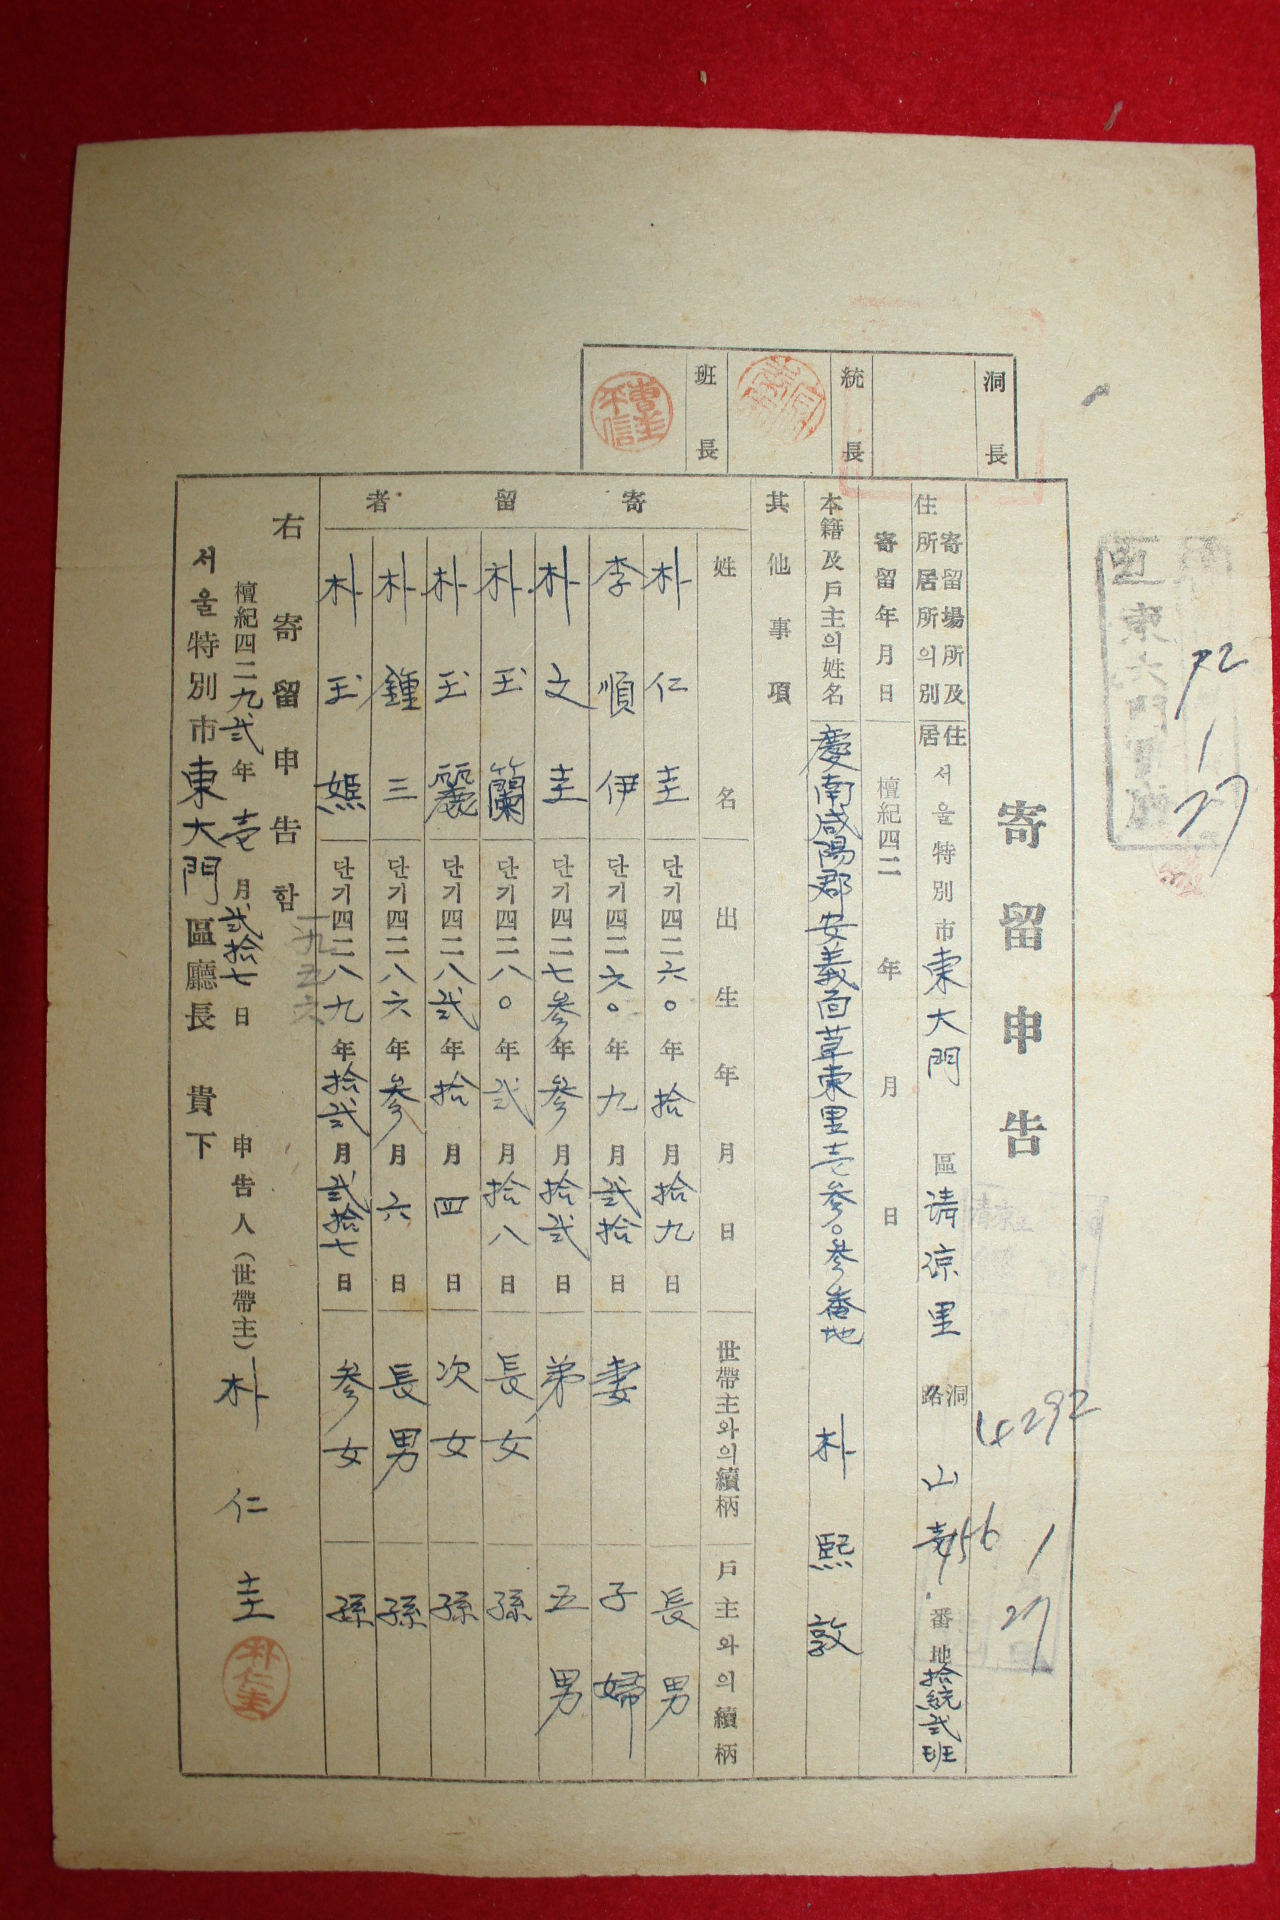 洞長
統長
班長
曺圭禾信
寄留申告
寄留場所及住所居所의別
住居 서울特別市 東大門 區 請凉里 洞路 山 番地 拾統弐班
寄留年月日
檀紀四二 年 月 日
本籍及戶主의姓名
慶南咸陽郡安義面草東里壱參〇參番地 朴熙敦
其他事項
寄留者
姓名 出生年月日 世帶主와의續柄 戶主와의續柄
朴仁圭 단기四二六〇年拾月拾九日 長男
李順伊 단기四二六〇年九月弐拾日 妻 子婦
朴文圭 단기四二七參年參月拾弐日 弟 五男
朴玉蘭 단기四二八〇年弐月拾八日 長女 孫
朴玉麗 단기四二八弐年拾月四日 次女 孫
朴鍾三 단기四二八六年參月六日 長男 孫
朴玉 단기四二八九年拾弐月弐拾七日 參女 孫
一九五六
右寄留申告함
檀紀四二九弐年壱月弐拾七日 申告人(世帶主) 朴仁圭
朴仁圭
서울特別市東大門區廳長 貴下
東大門
92
1
27
4292
1
27
156